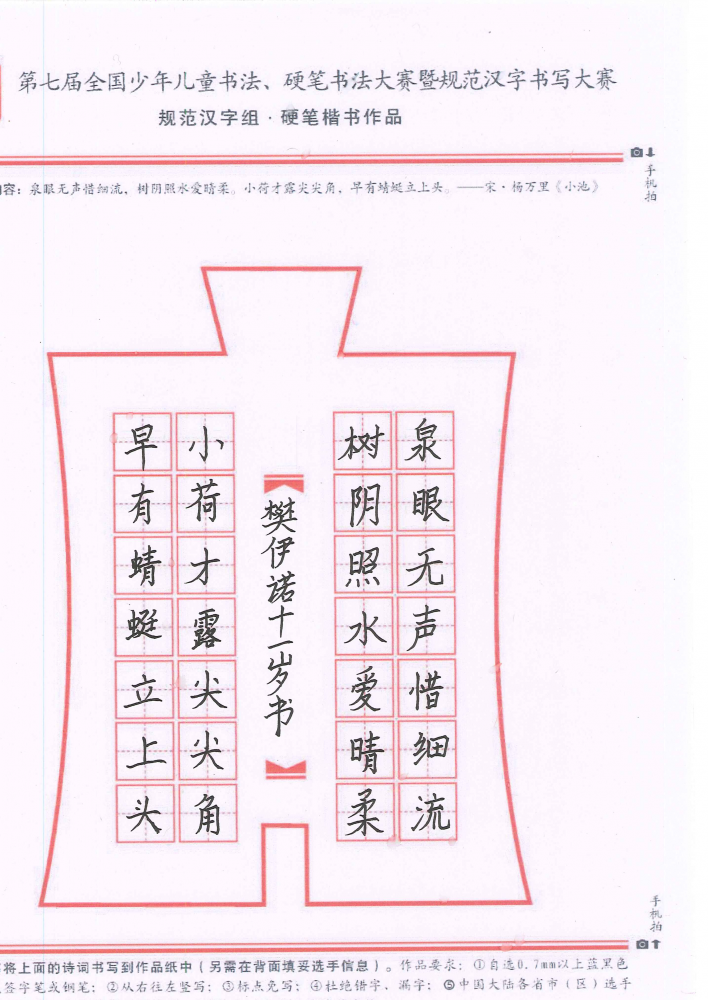 第七届全国少年儿童书法、硬笔书法大赛暨规范汉字书写大赛
规范汉字组·硬笔楷书作品
手机拍
容：泉眼无声惜细流，树阴照水爱晴柔。小荷才露尖尖角，早有蜻蜓立上头。——宋·杨万里《小池》
泉眼无声惜细流
树阴照水爱晴柔
樊伊诺十一岁书
小荷才露尖尖角
早有蜻蜓立上头
手机拍
将上面的诗词书写到作品纸中（另需在背面填妥选手信息）。作品要求：①自选0.7mm以上蓝黑色
签字笔或钢笔；②从右往左竖写；③标点免写；④杜绝错字、漏字；⑤中国大陆各省市（区）选手